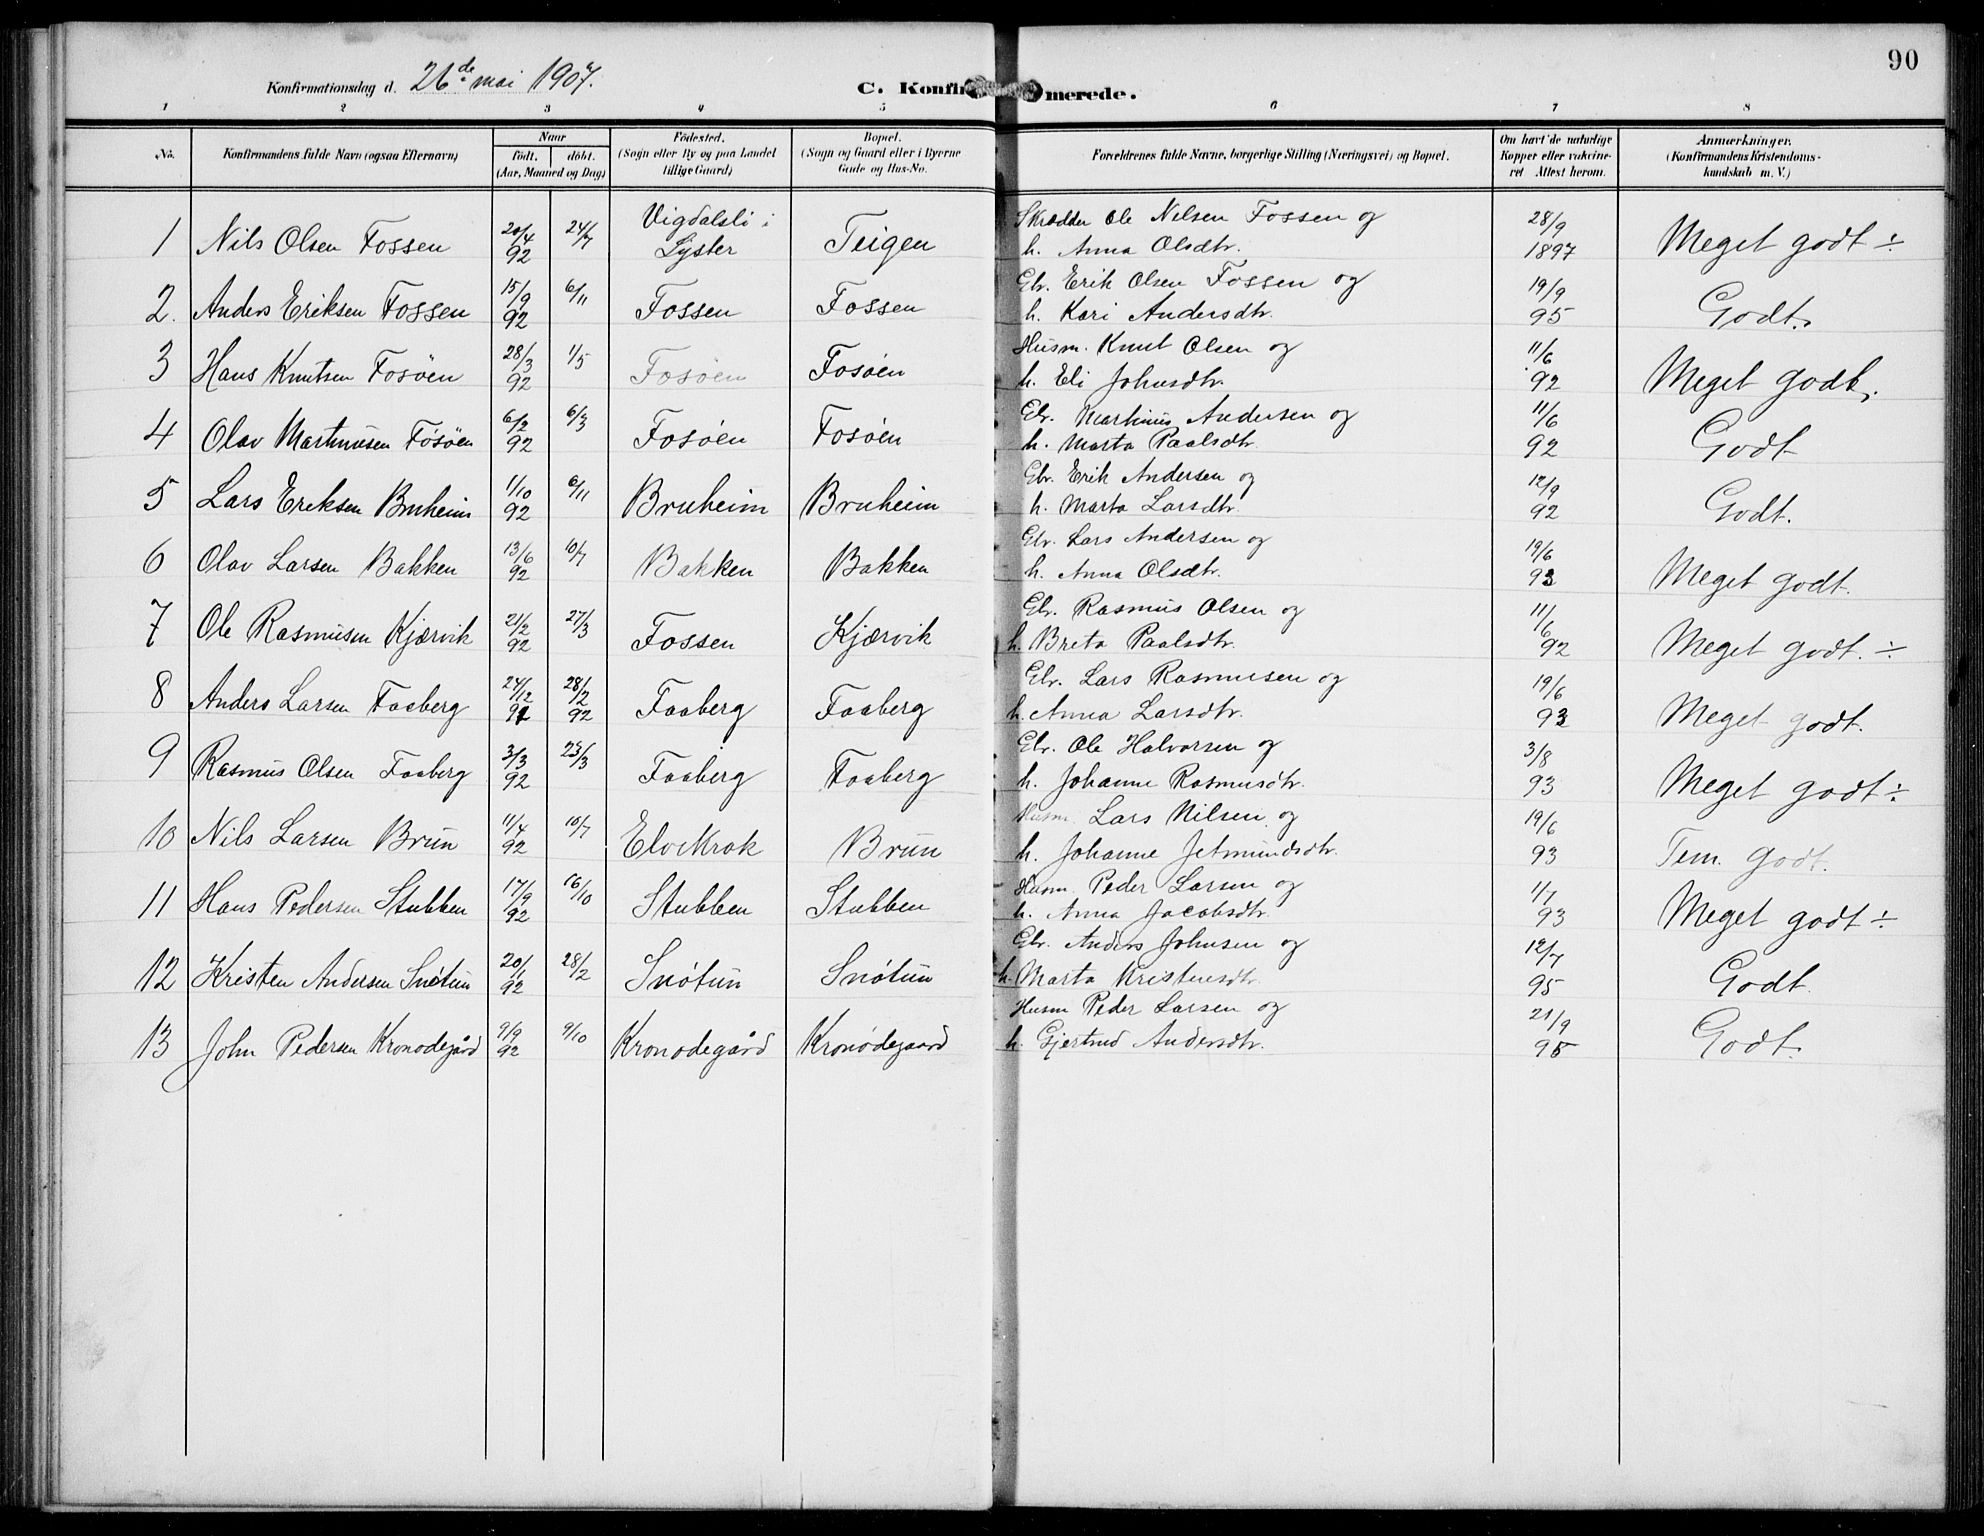 90
Konfirmationsdag d. 26de mai 1907. C. Konfirmerede.
1 2 3 4 5 6 7 8
No. Konfirmandens fulde Navn (ogsaa Efternavn) Naar født. døbt. (Aar, Maaned og Dag) Fødested. (Sogn eller By og paa Landet tillige Gaard) Bopæl. (Sogn og Gaard eller i Byerne Gade og Hus-No. Forældrenes fulde Navne, borgerlige Stilling (Næringsvei) og Bopæl. Om havt de naturlige Kopper eller vakcineret Attest herom. Anmærkninger. (Konfirmandens Kristendomskundskab m. V.)
1 Nils Olsen Fossen 20/4 92 24/7 Vigdalsli i Lyster Teigen Skrædder Ole Nelsen Fossen og h. Anna Olsdtr. 28/9 1897 Meget godt ÷
2. Anders Eriksen Fossen 15/9 92 6/11 Fossen Fossen Gbr. Erik Olsen Fossen og h. Kari Andersdtr. 19/9 95 Godt.
3 Hans Knutsen Fosøen 28/3 92 1/5 Fosøen Fosøen Husm. Knut Olsen og h. Eli Johnsdtr. 11/6 92 Meget godt.
4 Olav Martinusen Fosøen 6/2 92 6/3 Fosøen Fosøen Gbr. Martinus Andersen og h. Marta Paalsdtr. 11/6 92 Godt
5 Lars Eriksen Bruheim 11/10 92 6/11 Bruheim Bruheim Gbr. Erik Andersen og h. Marta Larsdtr. 12/9 92 Godt.
6 Olav Larsen Bakken 13/6 92 10/7 Bakken Bakken Gbr. Lars Andersen og h. Anna Olsdtr. 19/6 93 Meget godt.
7 Ole Rasmusen Kjærvik 21/2 92 27/3 Fossen Kjærvik Gbr. Rasmus Olsen og h. Breta Paalsdtr. 11/6 92 Meget godt. ÷
8 Anders Larsen Faaberg 24/12 91 28/2 92 Faaberg Faaberg Gbr. Lars Rasmusen og h. Anna Larsdtr. 19/6 93 Meget godt.
9 Rasmus Olsen Faaberg 3/3 92 23/3 Faaberg Faaberg Gbr. Ole Halvorsen og h. Johanne Rasmusdtr. 3/8 93 Meget godt ÷
10 Nils Larsen Brun 11/4 92 10/7 Elvekrok Brun Husm. Lars Nilsen og h. Johanne Jetmundsdtr. 19/6 93 Tem. godt.
11 Hans Pedersen Stubben 17/9 92 16/10 Stubben Stubben Husm. Peder Larsen og h. Anna Jacobsdtr. 11/7 93 Meget godt ÷
12 Kristen Andersen Snøtun 20/1 92 28/2 Snøtun Snøtun Gbr. Anders Johnsen og h. Marta Kristensdtr. 12/7 95 Godt.
13 John Pedersen Kronodegård 9/9 92 9/10 Kronodegård Kronødegaard Husm Peder Larsen og h. Gjertrud Andersdtr. 21/9 95 Godt.